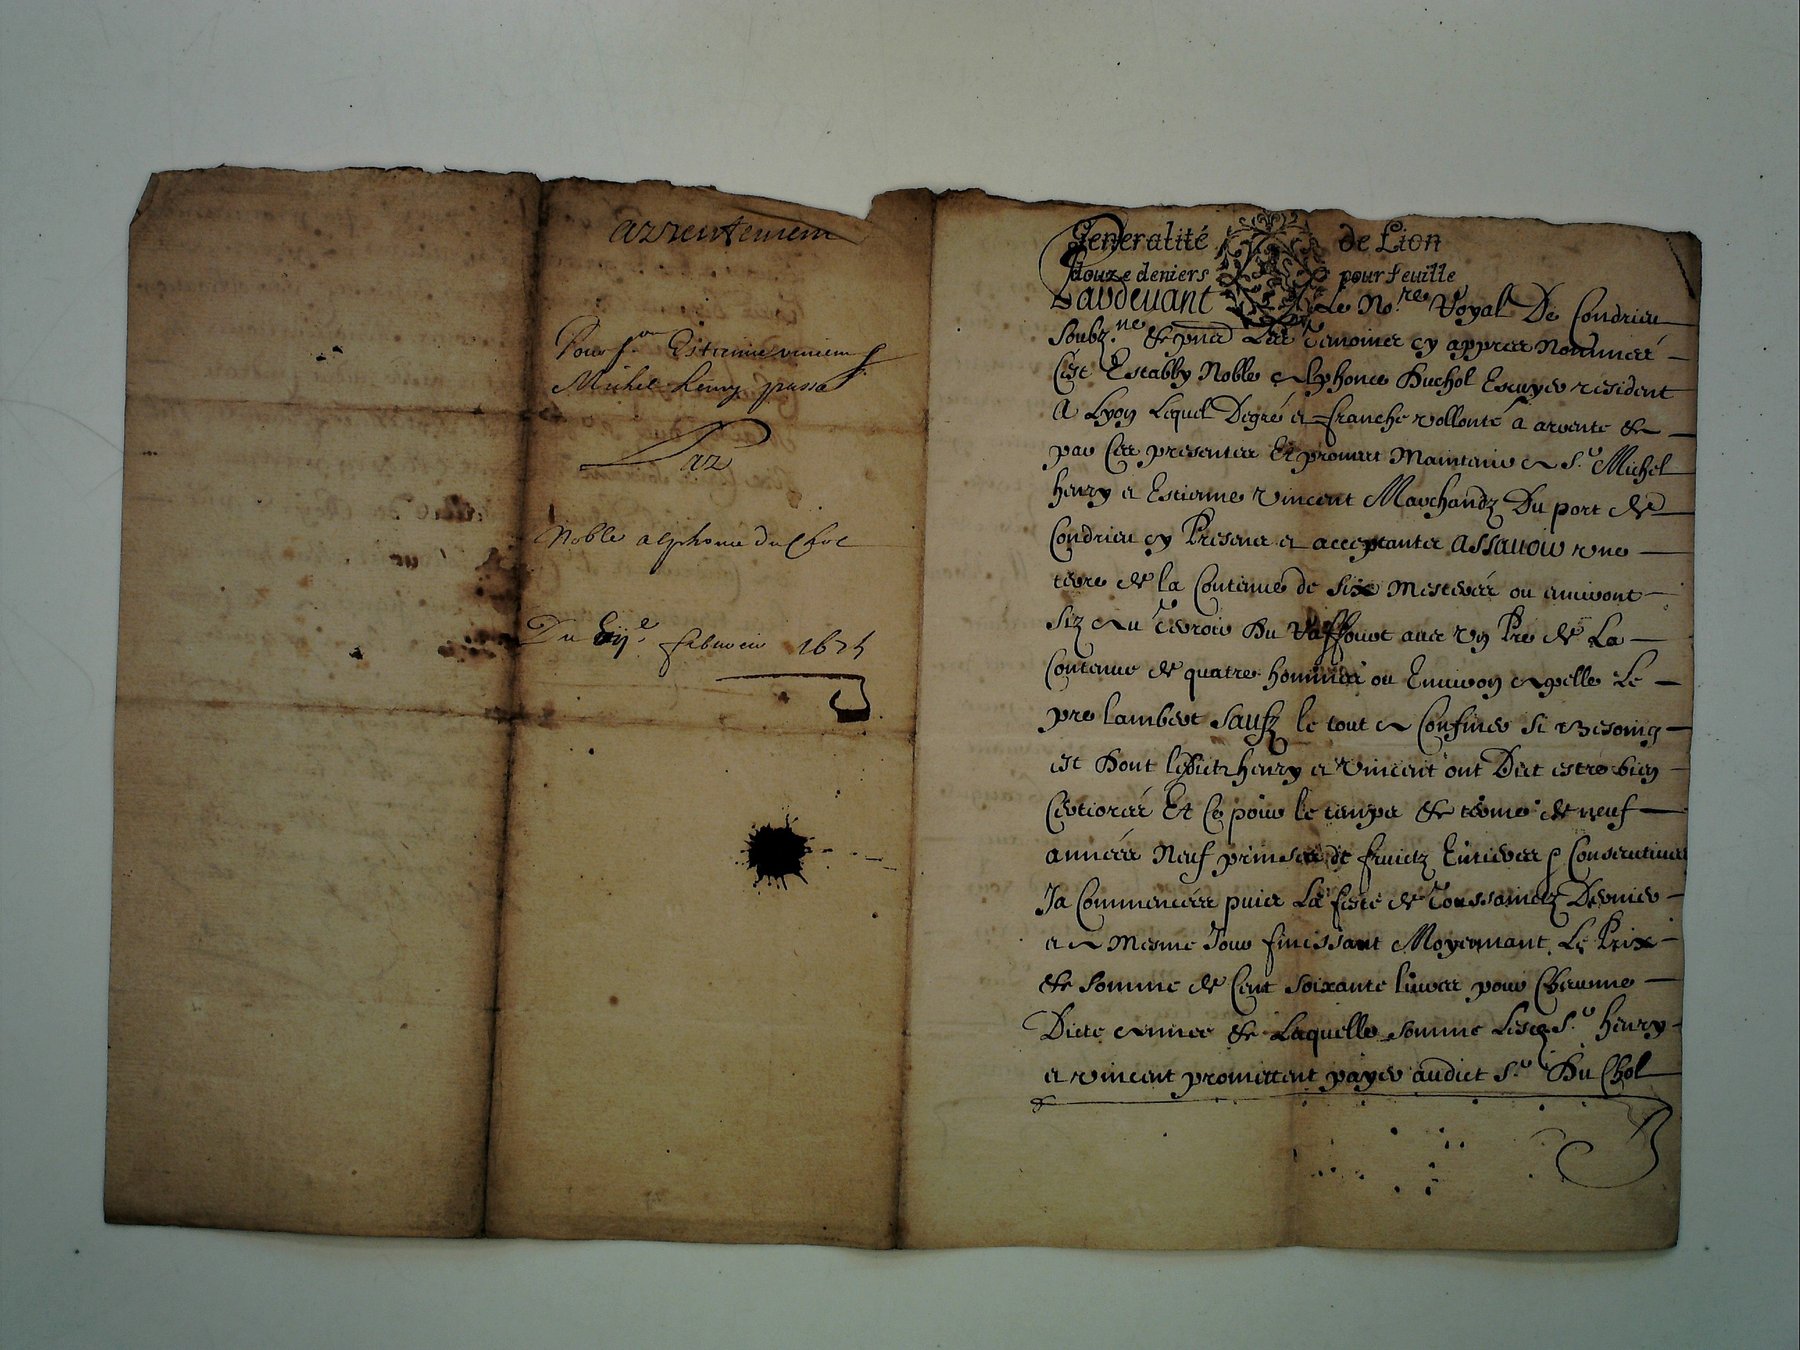 arrentement
Pour Sr Estienne vincent &
Michel henry passé
Par
Noble alphonse du Chol
Du febvrier 1675
Generalité de Lion
douze deniers pour feuille
Pardevant Le No.re Royal De Condrieu
soubz.ne & pnts Les Temoines cy appres Nommés
C'est Estably Noble Alphonce Duchol Escuyer resident
A Lyon Lequel Degré et franche vollonté a arrente &
par Ces presentes Et promect Maintenir A S.r Michel
henry et Estienne vincent Marchandz Du port de
Condrieu cy Presens et acceptantz Assavoir une
terre de la Contenue de six Mesterées ou environt
siz Au Terroir Du avec vn Pre de La
Contenue de quatre hommées ou Environ Apellé Le
pre lambert saufz le tout A Confiner si Besoing
est Dont lesdictz henry et vincent ont Dict estre bien
Certiorés Et Ce pour le temps & terme de neuf
années Neuf prinses de fruictz Entieres & Consecutives
Ja Commencées puis La feste de Toussainctz Dernier
et A Mesme Jour finissant Moyennant Le Prix
& somme de Cent soixante livres pour Chacune
Dicte Année & Laquelle somme Lesd S.r henry
et vincent promettent payer audict S.r Du Chol